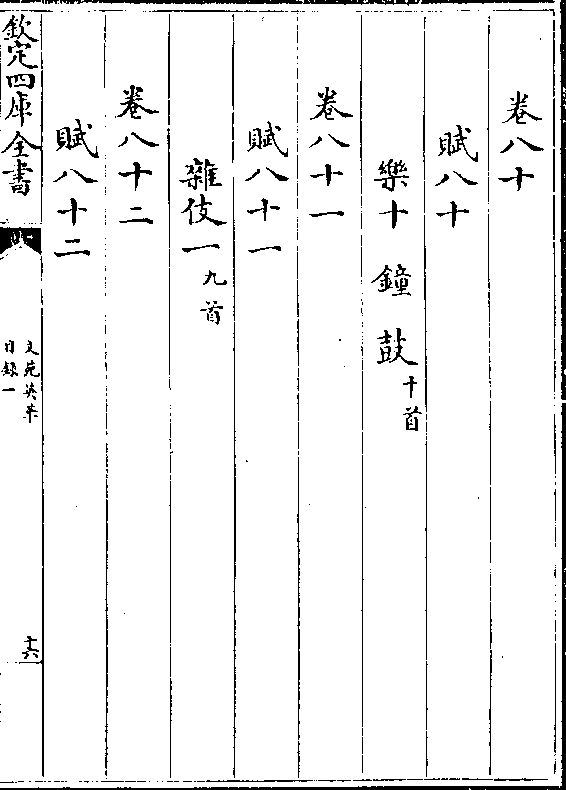 卷八十
賦八十
樂十　鐘　鼓十首
卷八十一
賦八十一
雜伎一九首
卷八十二
賦八十二
欽定四庫全書
文苑英華
目録一
十六